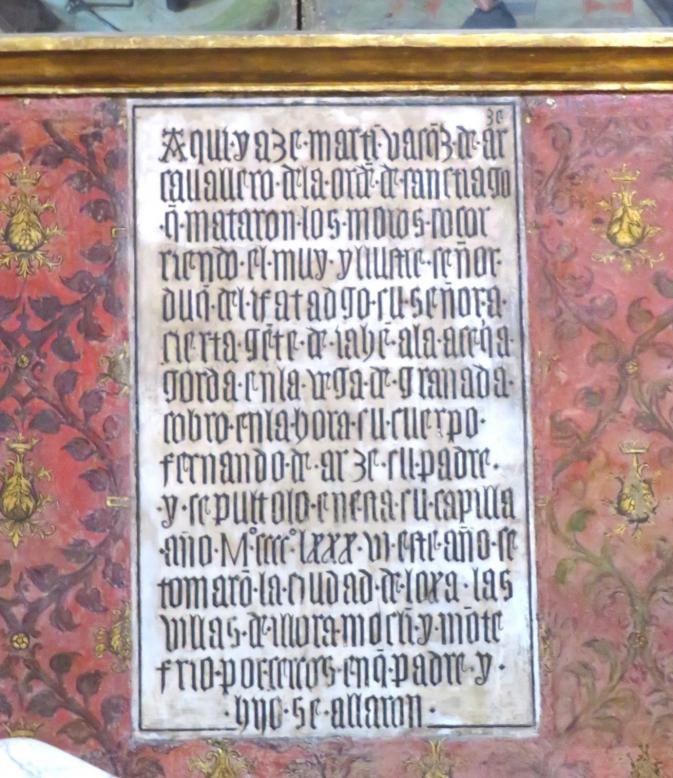 Aqui·yaze·martī·vasq̄z·de·ar ze
cauallero·de·la·ordē·de·sanctiago
·q̄·mataron·los·moros·socor
riendo·el·muy·yllustre·señor·
duq̄·del·ifātadgo·su·señor·a·
cierta·gēte·de·iahē·a·la·aceq̄a·
gorda·en·la·vega·de·granada·
cobro·en·la·hora·su·cuerpo·
fernando·de·arze·su·padre·
·y·sepultolo·en·esta·su·capilla
año·Mº·cccc·º·lxxx·vi·este·año·se
tomarō·la·ciudad·de·loxa·las
villas·de·illora·moclī·y·mōte
frio·por·cercos·en·q̄·padre·y·
·hijo·se·allaron·